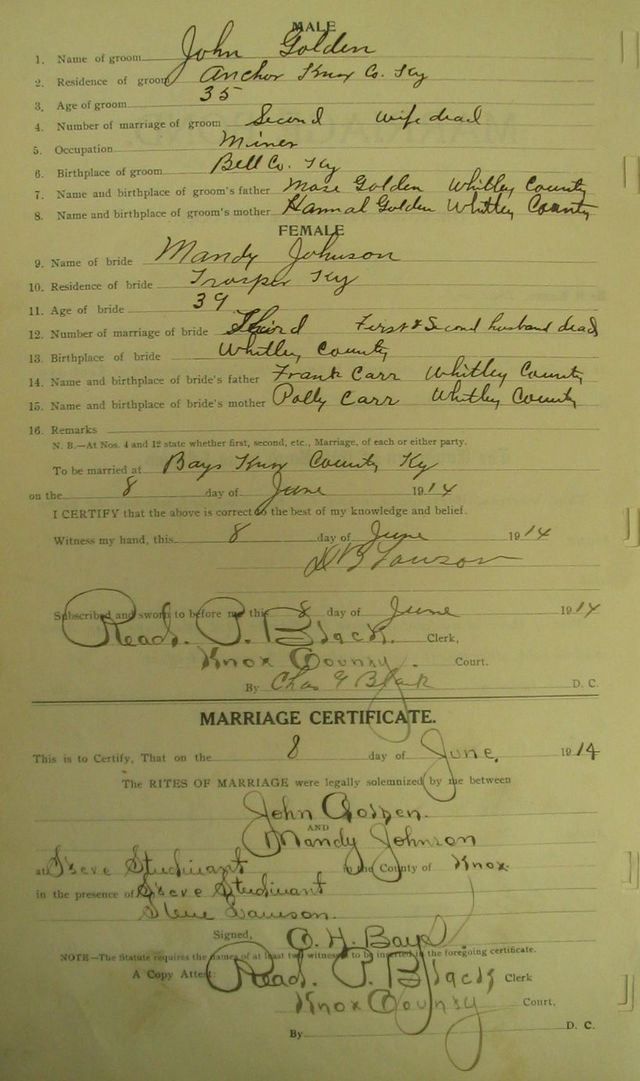 MALE
1. Name of groom John Golden
2. Residence of groom Anchor Knox Co. Ky
3. Age of groom 35
4. Number of marriage of groom Second Wife dead
5. Occupation Miner
6. Birthplace of groom Bell Co. Ky
7. Name and birthplace of groom's father Mose Golden Whitley County
8. Name and birthplace of groom's mother Hannah Golden Whitley County
FEMALE
9. Name of bride Mandy Johnson
10. Residence of bride Trosper Ky
11. Age of bride 39
12. Number of marriage of bride Third First & Second husband dead
13. Birthplace of bride Whitley County
14. Name and birthplace of bride's father Frank Carr Whitley County
15. Name and birthplace of bride's mother Polly Carr Whitley County
16. Remarks
N. B.—At Nos. 4 and 12 state whether first, second, etc., Marriage, of each or either party.
To be married at Bays Knox County Ky
on the 8 day of June 1914
I CERTIFY that the above is correct to the best of my knowledge and belief.
Witness my hand, this 8 day of June 1914
D B Lawson
Subscribed and sworn to before me this 8 day of June 1914
Read. P. Black. Clerk,
Knox County. Court.
By Chas G Black D. C.
MARRIAGE CERTIFICATE.
This is to Certify, That on the 8 day of June, 1914
The RITES OF MARRIAGE were legally solemnized by me between
John Golden.
AND
Mandy Johnson
at Steve Studivant in the County of Knox.
in the presence of Steve Studivant
Steve Lawson.
Signed, O. H. Bays.
NOTE—The Statute requires the names of at least two witnesses to be inserted in the foregoing certificate.
A Copy Attest: Read. P. Black Clerk
Knox County Court,
By D. C.